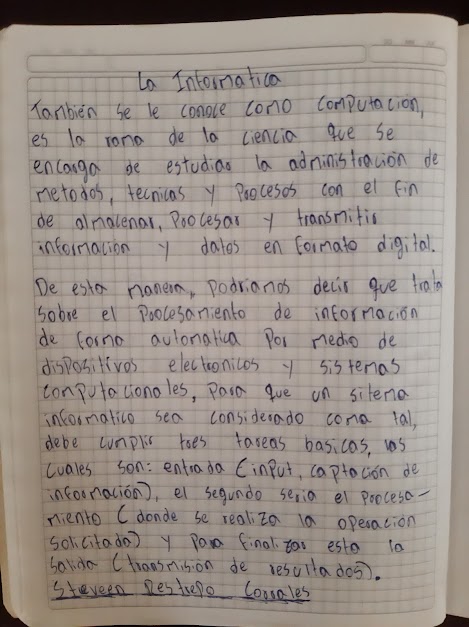 La Informatica
También se le conoce como computación,
es la rama de la ciencia que se
encarga de estudiar la administración de
metodos, tecnicas y procesos con el fin
de almacenar, procesar y transmitir
información y datos en formato digital.
De esta manera, podriamos decir que trata
sobre el procesamiento de información
de forma automatica por medio de
dispositivos electronicos y sistemas
computacionales, para que un sitema
informatico sea considerado como tal,
debe cumplir tres tareas basicas, las
cuales son: entrada (input, captación de
información), el segundo seria el procesa-
miento (donde se realiza la operación
solicitada) y para finalizar esta la
salida (transmisión de resultados).
Steveen Restrepo Corrales